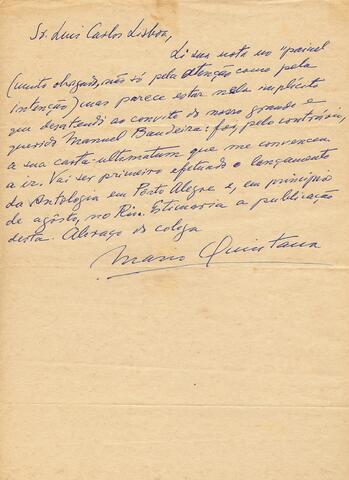 Sr. Luis Carlos Lisboa,
Li sua nota no "painel
(muito obrigado, não só pela atenção como pela
intenção) mas parece estar nela implícito
que desatendi ao convite do nosso grande e
querido Manuel Bandeira: foi, pelo contrário,
a sua carta-ultimatum que me convenceu
a ir. Vai ser primeiro efetuado o lançamento
da Antologia em Porto Alegre e, em princípio
de agosto, no Rio. Estimaria a publicação
desta. Abraço do colega
Mario Quintana